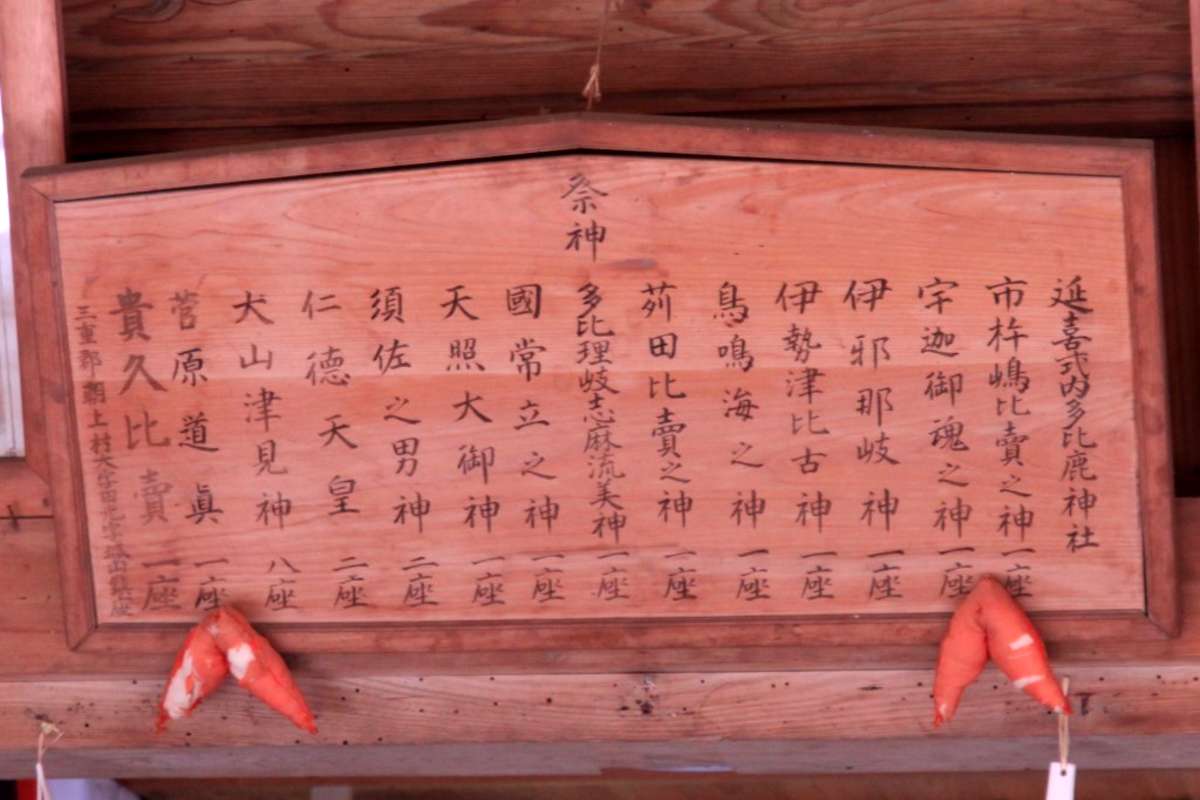 祭神
延喜式内多比鹿神社
市杵嶋比賣之神 一座
宇迦御魂之神 一座
伊邪那岐神 一座
伊勢津比古神 一座
鳥鳴海之神 一座
苅田比賣之神 一座
多比理岐志麻流美神 一座
國常立之神 一座
天照大御神 一座
須佐之男神 二座
仁德天皇 二座
大山津見神 八座
菅原道眞 一座
貴久比賣 一座
三重郡朝上村大字田光字